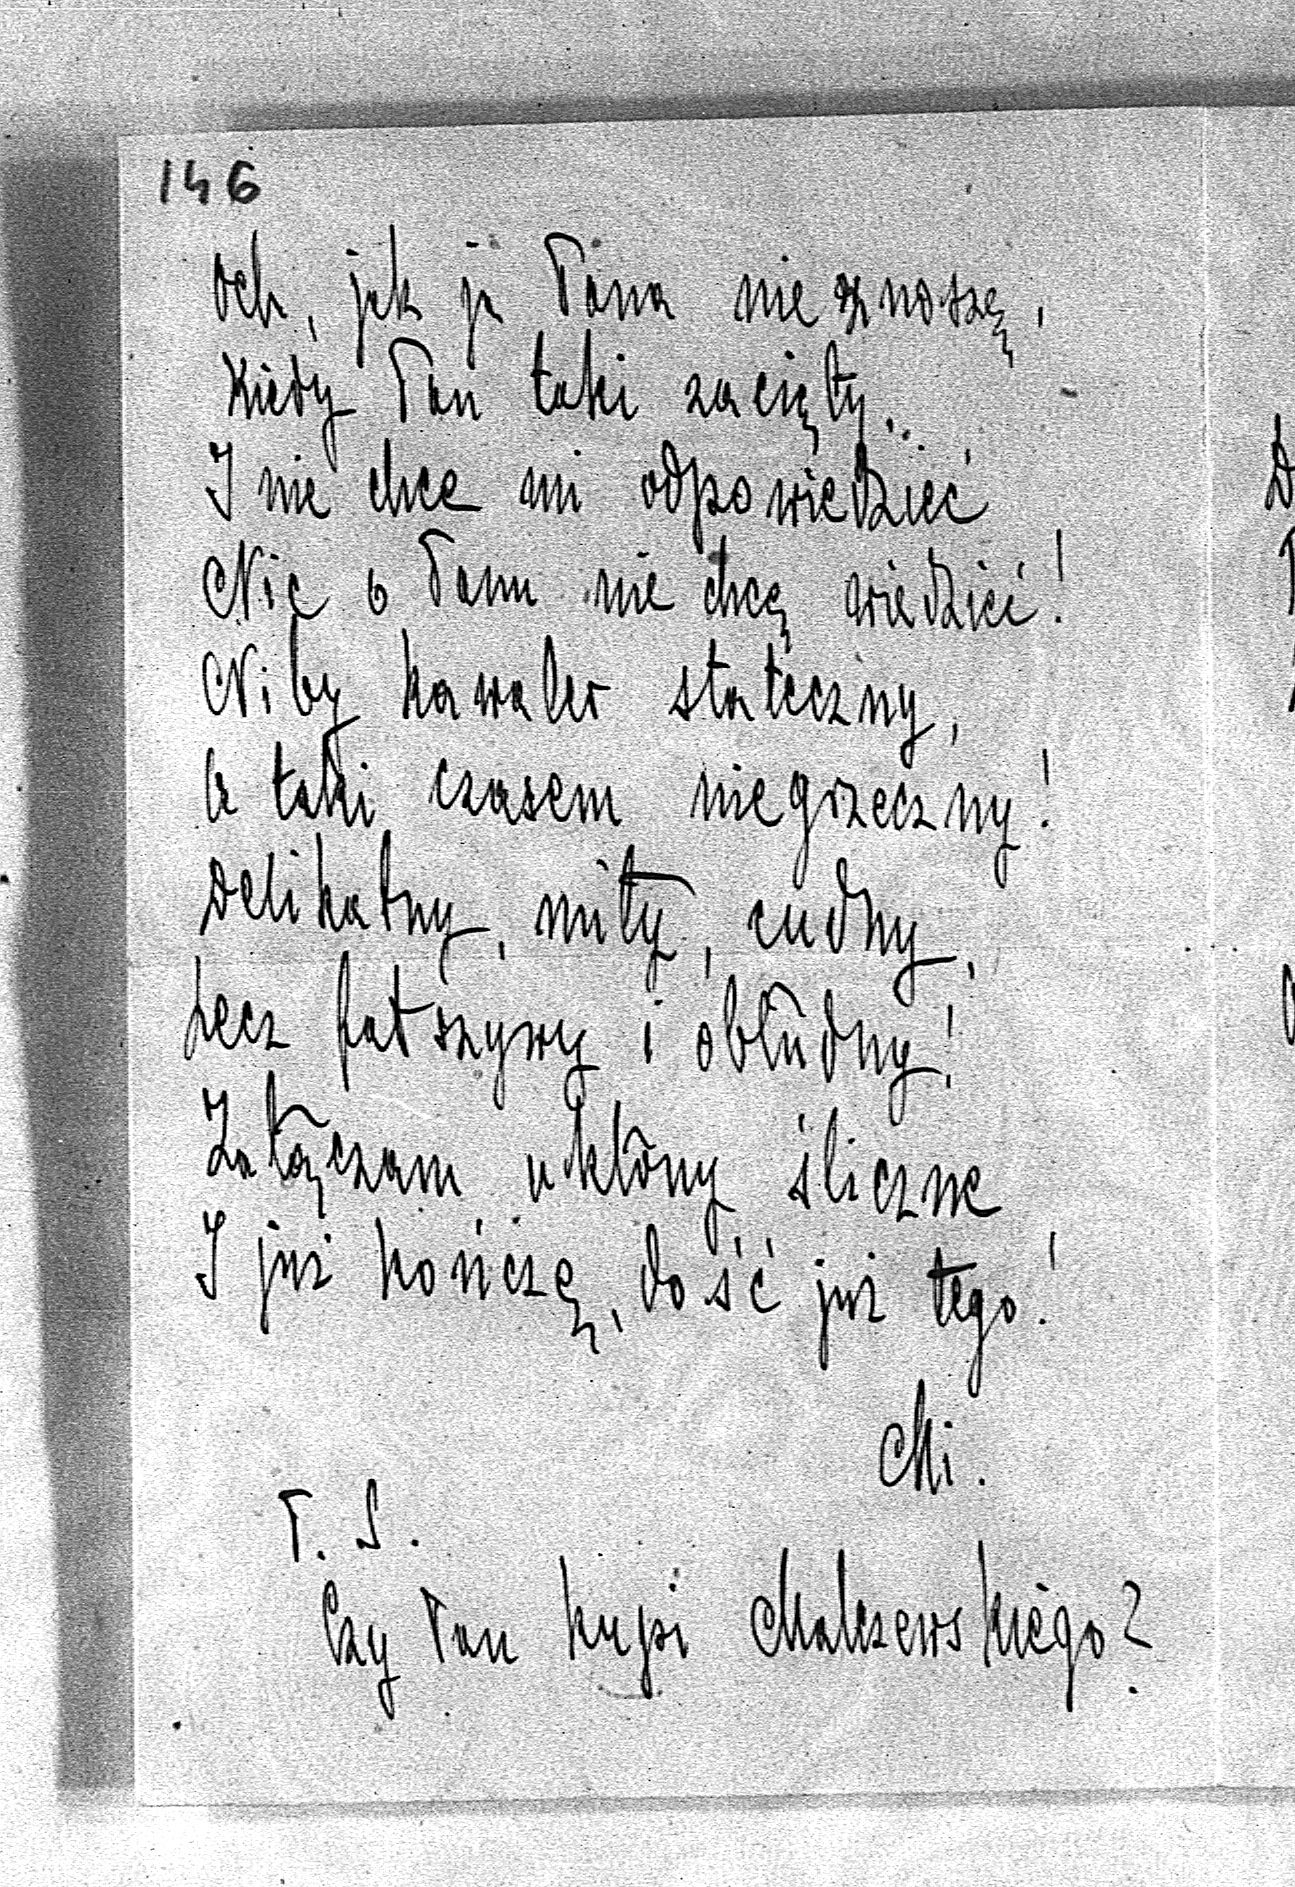 146
Och, jak ja Pana nie znoszę,
Kiedy Pan taki zacięty..
I nie chce mi odpowiedzieć
Nic o Panu nie chcę wiedzieć!
Niby kawaler stateczny,
A taki czasem niegrzeczny!
Delikatny, miły, cudny,
Lecz fałszywy i obłudny!
Załączam ukłony śliczne
I już kończę, dość już tego!
Mi.
P. S.
Czy Pan kupi Malczewskiego?